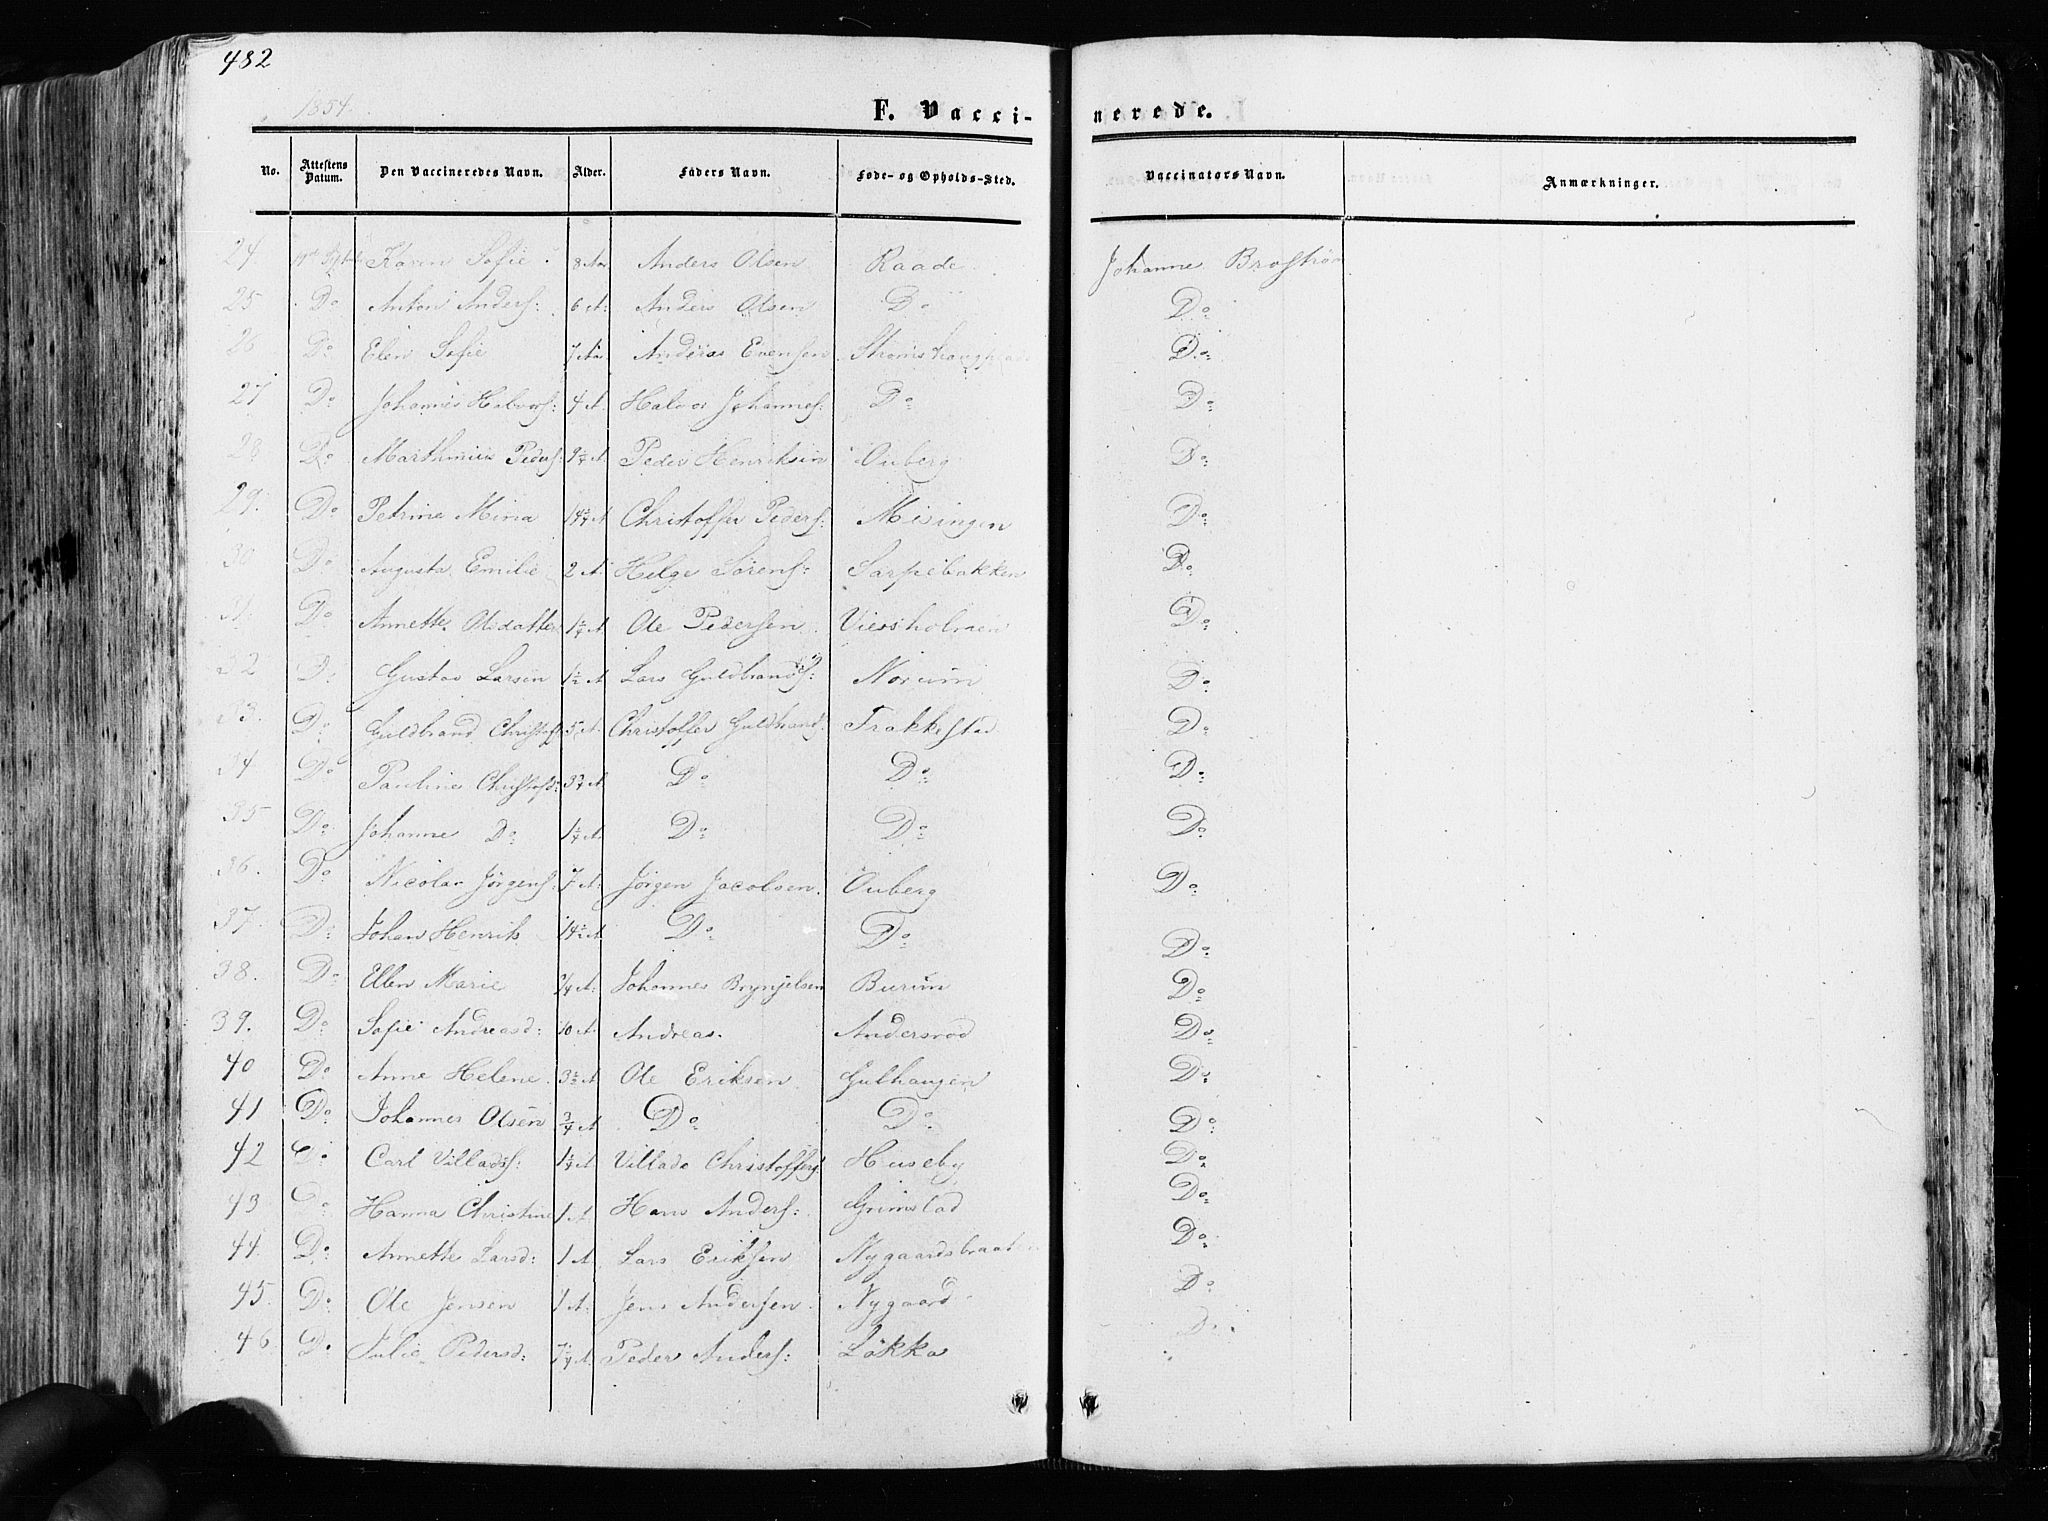 482
1854.
F. Vacci- nerede.
No. Attestens Datum. Den Vaccineredes Navn. Alder. Faders Navn. Føde- og Opholds-Sted. Vaccinators Navn. Anmærkninger.
24 Karen Sofie 8 Aar Anders Olsen Raade Johanne Brostrøm
25 Do Anton Anders: 6 A: Anders Olsen Do Do
26 Do Elen Sofie 7 Aar Andreas Evensen Do
27 Do Johannes Halvors: 4 A. Halvor Johannes: Do Do
28 Do Marthinius Peders: A. Peder Henriksen Ouberg Do
29. Do Petrine Mina A Christoffer Peders: Misingen Do
30 Do Augusta Emilie 2 A Helge Sørens: Sarpebakken Do
31. Do Annette Olsdatter 1 1/4 A Ole Pedersen Viersholmen Do
32 Do Gustav Larsen 1 1/2 A Lars Guldbrands: Norum Do
33. Do Guldbrand Christof 5 A. Christoffer Guldbrands: Trakkestad Do
34. Do Pauline Christofd: 3 3/4 A Do Do Do
35 Do Johanne Do 1 1/4 A. Do Do Do
36. Do Nicolai Jørgens: 7 A: Jørgen Jacobsen. Ouberg Do
37. Do Johan Henrik 14 1/2 A. Do Do Do
38. Do Ellen Marie 3/4 A: Johannes Brynjelsen Burum Do
39. Do Sofie Andreasd: 10 A. Andreas. Andersrød Do
40 Do Anne Helene. 3 1/2 A Ole Eriksen Gulhaugen Do
41 Do Johannes Olsen 3/4 A Do Do Do
42 Do Carl Villads: 1 1/4 A Villads Christoffers: Huseby Do
43 Do Hanna Christine 1 A. Hans Anders: Grimstad Do
44. Do Annette Larsd: 1 A. Lars Eriksen Nygaardsbraaten Do
45. Do Ole Jensen 1 A: Jens Andersen. Nygaard Do
46 Do Julie Pedersd: 7 1/4 A. Peder Anders: Løkka Do